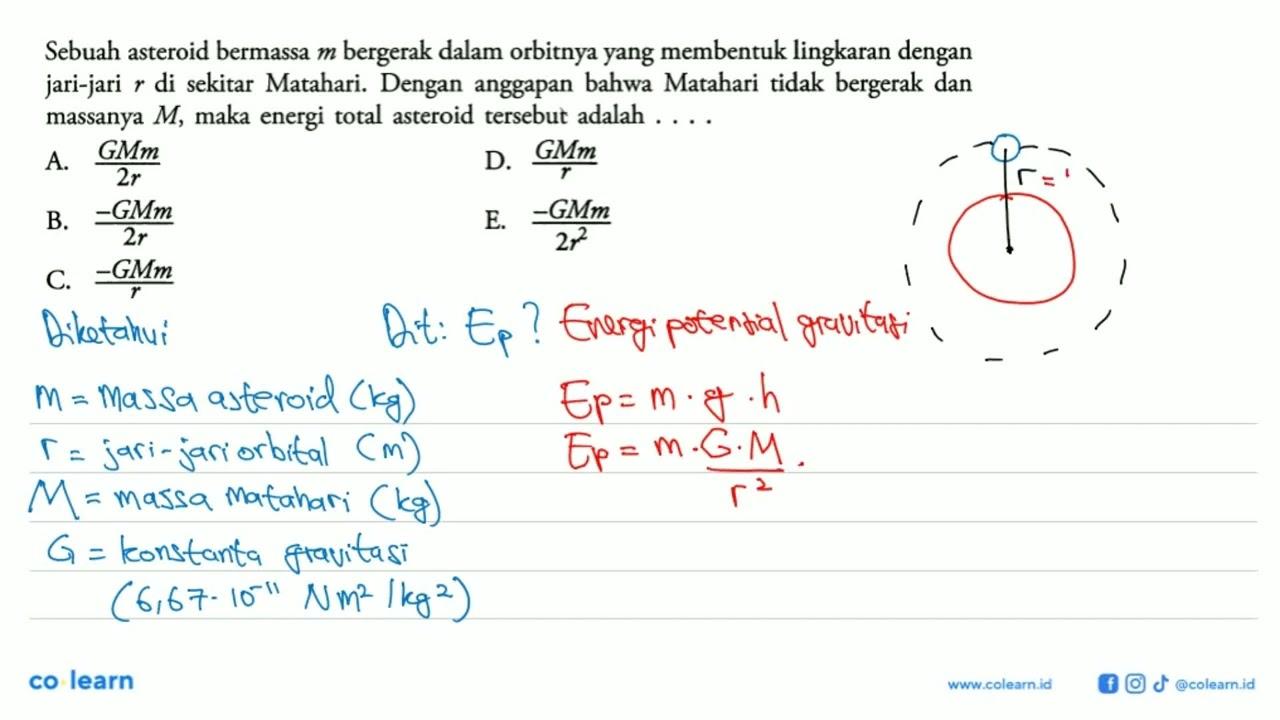 Sebuah asteroid bermassa m bergerak dalam orbitnya yang membentuk lingkaran dengan
jari-jari r di sekitar Matahari. Dengan anggapan bahwa Matahari tidak bergerak dan
massanya M, maka energi total asteroid tersebut adalah . . . .
A. GMm/2r
B. -GMm/2r
C. -GMm/r
D. GMm/r
E. -GMm/2r²
r = '
Diketahui
m = massa asteroid (kg)
r = jari-jari orbital (m)
M = massa Matahari (kg)
G = konstanta gravitasi
(6,67 · 10⁻¹¹ Nm² / kg²)
Dit: Ep ? Energi potensial gravitasi
Ep = m · g · h
Ep = m · G · M / r² .
co learn
www.colearn.id
@colearn.id